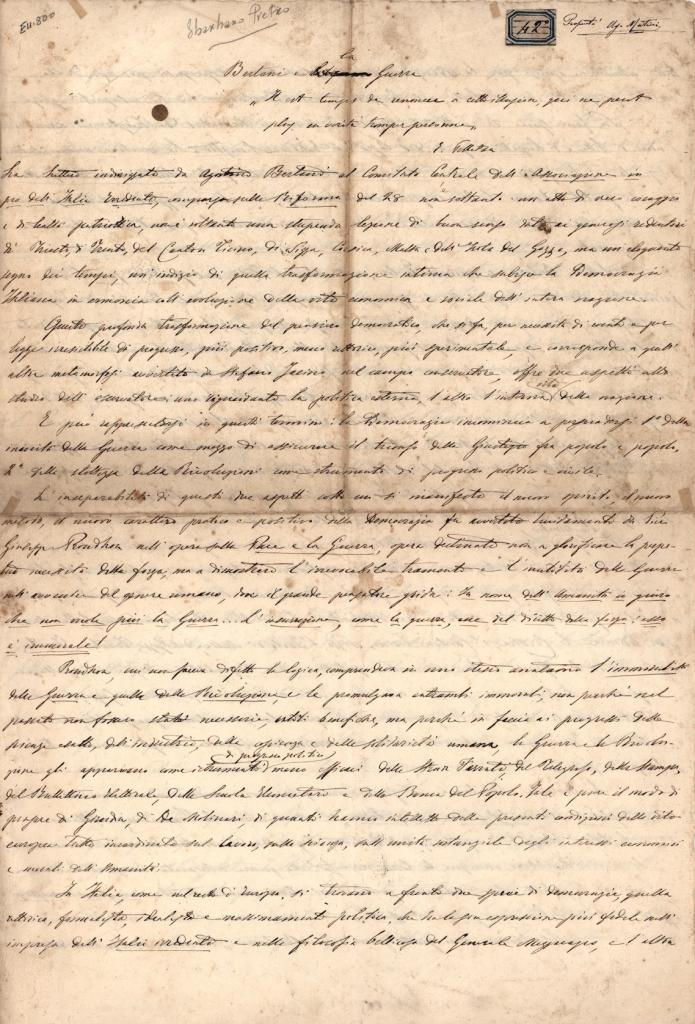 EU.800
Sbarbaro Pietro
42°
Proprietà Ag. Maturi
la
Bertani e Guerra
"Il est temps de renoncer à cette illusion, qui ne peut
plus en vérité tromper personne"
ha lettera indirizzata da Agostino Bertani al Comitato Centrale dell'Associazione in
pro dell'Italia Irredenta, comparsa sulla Riforma del 28 non soltanto un atto di vero coraggio
e di carità patriottica, non è soltanto una stupenda lezione di buon senso data ai generosi redentori
di Trieste, di Trento, del Canton Ticino, di Nizza, Corsica, Malta e dell'Isola del Gozzo, ma un eloquente
segno dei tempi, un indizio di quella trasformazione interna che subisce la Democrazia
Italiana in armonia coll'evoluzione della vita economica e sociale dell'intera nazione.
Questa profonda trasformazione del pensiero democratico, che si fa, per necessità di eventi e per
legge irresistibile di progresso, più positivo, meno rettorico, più sperimentale, e corrisponde a quell'
altra metamorfosi avvertita da Stefano Jacini nel campo conservatore, offre due aspetti allo
studio dell'osservatore: uno riguardante la politica esterna, l'altro l'interna vita della nazione.
E può rappresentarsi in questi termini: la Democrazia incomincia a persuadersi 1° della
inanità della Guerra come mezzo di assicurare il trionfo della Giustizia fra popolo e popolo,
2° della stoltezza della Rivoluzione come strumento di progresso politico e civile.
L'inseparabilità di questi due aspetti sotto cui si manifesta il nuovo spirito, il nuovo
metodo, il nuovo carattere pratico e positivo della Democrazia fu avvertita lucidamente da Pier
Giuseppe Proudhon nell'opera sulla Pace e la Guerra, opera destinata non a glorificare la perpetua
necessità della forza, ma a dimostrare l'irrevocabile tramonto e l'inutilità della Guerra
nell'avvenire del genere umano, dove il grande pensatore grida: In nome dell'Umanità io giuro
che non vuole più la Guerra... L'insurrezione, come la guerra, esce dal diritto della forza: essa
è immorale!
Proudhon, cui non faceva difetto la logica, comprendeva in uno stesso anatema l'immoralità
della Guerra e quella della Rivoluzione, e le promulgava entrambi immorali, non perché nel
passato non fossero state necessarie ed utili benefiche, ma perché in faccia ai progressi delle
scienze esatte, dell'industria, della e della solidarietà umana, la Guerra e la Rivolu-
zione gli apparivano come istrumenti di progresso politico meno efficaci delle Strade Ferrate, del Telegrafo, della Stampa,
del Bullettino Elettorale, della Scuola Elementare e della Banca del Popolo. Tale è pure il modo di
pensare di Girardin, di De Molinari, di quanti hanno intelletto delle presenti condizioni della vita
europea tutta incardinata sul lavoro, sulla scienza, sull'unità degli interessi economici
e morali dell'Umanità.
In Italia, come nel resto d'Europa, si trovano a fronte due specie di democrazia, quella
rettorica, formalista, idealista e politica, che ha la sua espressione più fedele nell'
impresa dell'Italia irredenta e nella filosofia bellicosa del Generale Mezzacapo, e l'altra